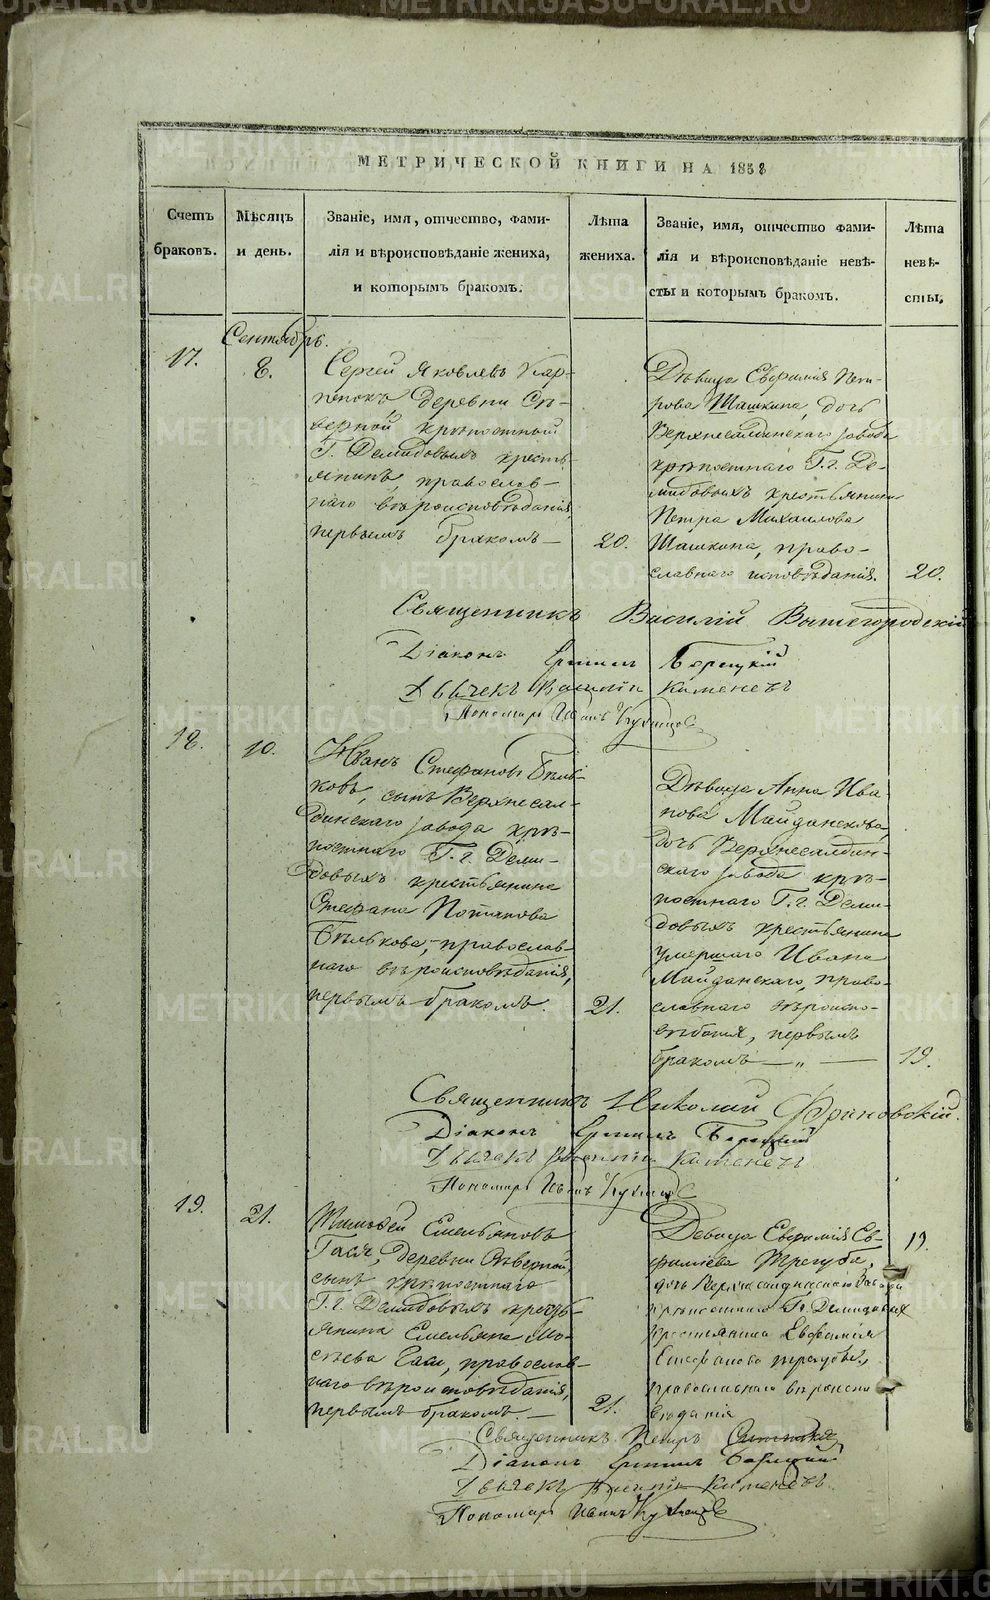 МЕТРИЧЕСКОЙ КНИГИ НА 1858
Счетъ браковъ.
Мѣсяцъ и день.
Званіе, имя, отчество, фами-
лія и вѣроисповѣданіе жениха,
и которымъ бракомъ.
Лѣта жениха.
Званіе, имя, отчество фами-
лія и вѣроисповѣданіе невѣ-
сты и которымъ бракомъ.
Лѣта невѣ-
сты,
Сентябрь.
17.
8.
Сергей Яковлевъ Кар-
пенокъ деревни Сѣ-
верной крѣпостный
Г. Демидовыхъ кресть-
янинъ, православ-
наго вѣроисповѣданія,
первымъ бракомъ —
20.
Дѣвица Евфимія Пет-
рова Шашкина, дочь
Верхнесалдинскаго завода
крѣпостнаго Г.г. Де-
мидовыхъ крестьянина
Петра Михаилова
Шашкина, право-
славнаго исповѣданія.
20.
Священникъ Василій Вышегородскій
Діаконъ Борецкій
Дьячекъ Василій Каменевъ
Пономарь Иванъ Кузнецовъ
18.
10.
Иванъ Стефановъ Бѣль-
ковъ, сынъ Верхнесал-
динскаго завода крѣ-
постнаго Г.г. Деми-
довыхъ крестьянина
Стефана Потапова
Бѣлькова, православ-
наго вѣроисповѣданія,
первымъ бракомъ.
21.
Дѣвица Анна Ива-
нова Майданскова,
дочь Верхнесалдин-
скаго завода крѣ-
постнаго Г.г. Деми-
довыхъ крестьянина
умершаго Ивана
Майданскаго, право-
славнаго вѣроиспо-
вѣданія, первымъ
бракомъ — „ —
19.
Священникъ Николай
Діаконъ Борецкій
Дьячекъ Василій Каменевъ
Пономарь Иванъ Кузнецовъ
19.
21.
Тимофей Емельяновъ
Гася, деревни Сѣверной,
сынъ крѣпостнаго
Г.г. Демидовыхъ кресть-
янина Емельяна Мо-
сѣева Гаси, православ-
наго вѣроисповѣданія,
первымъ бракомъ. —
21.
Девица Евфимія Ев-
фиміева Трегуба,
дочь Верхнесалдинскаго Завода
крѣпостнаго Гг. Демидовыхъ
крестьянина Евфимія
Трегубы,
православнаго вѣроиспо
вѣданія
19
Священникъ Петръ
Діаконъ Борецкій
Дьячекъ Василій Каменевъ.
Пономарь Иванъ Кузнецовъ
METRIKI.GASO-URAL.RU